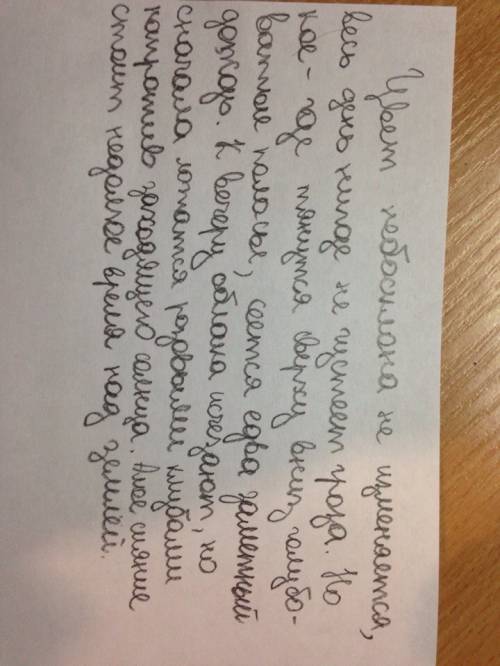 Цвет небосклона не изменяется,
весь день нигде не густеет гроза. Но
кое-где тянутся сверху вниз голубо-
ватые полосы, сеется едва заметный
дождь. К вечеру облака исчезают, но
сначала ложатся розовыми клубами
напротив заходящего солнца. Алое сияние
стоит недолгое время над землей.